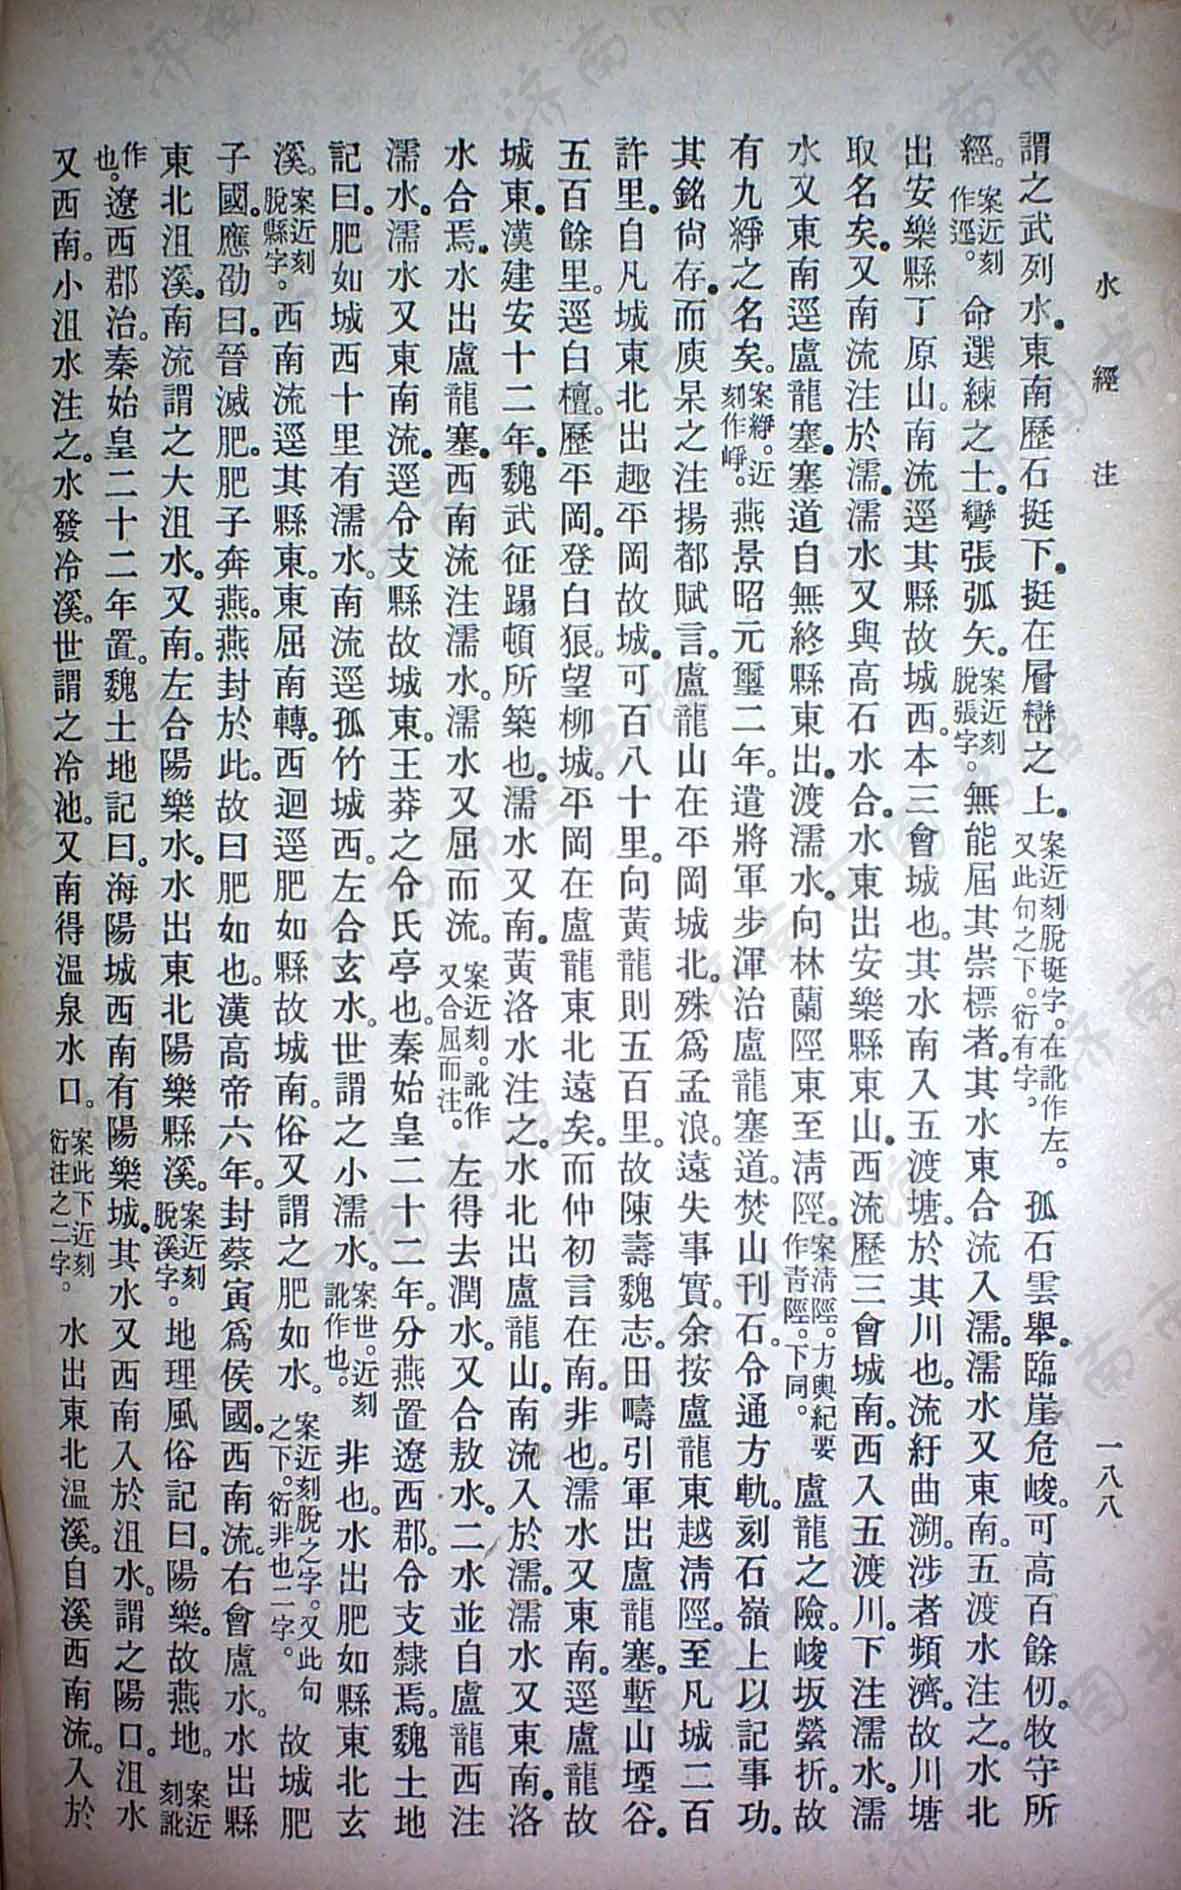 水經注
一八八
謂之武列水。東南歷石挺下。挺在層巒之上。案近刻脫挺字。在訛作左。又此句之下。衍有字。孤石雲舉。臨崖危峻。可高百餘仞。牧守所
經。案近刻作逕。命選練之士。彎張弧矢。案近刻脫張字。無能屆其崇標者。其水東合流入濡。濡水又東南。五渡水注之。水北
出安樂縣丁原山。南流逕其縣故城西。本三會城也。其水南入五渡塘。於其川也。流紆曲溯。涉者頻濟。故川塘
取名矣。又南流注於濡。濡水又與高石水合。水東出安樂縣東山。西流歷三會城南。西入五渡川。下注濡水。濡
水又東南逕盧龍塞。塞道自無終縣東出。渡濡水。向林蘭陘東至淸陘。案淸陘。方輿紀要作靑陘。下同。盧龍之險。峻坂縈折。故
有九綷之名矣。案綷。近刻作崢。燕景昭元璽二年。遣將軍步渾治盧龍塞道。焚山刊石。令通方軌。刻石嶺上以記事功。
其銘尙存。而庾杲之注揚都賦言。盧龍山在平岡城北。殊爲孟浪。遠失事實。余按盧龍東越淸陘。至凡城二百
許里。自凡城東北出趣平岡故城。可百八十里。向黃龍則五百里。故陳壽魏志。田疇引軍出盧龍塞。塹山堙谷。
五百餘里。逕白檀。歷平岡。登白狼。望柳城。平岡在盧龍東北遠矣。而仲初言在南。非也。濡水又東南。逕盧龍故
城東。漢建安十二年。魏武征蹋頓所築也。濡水又南。黃洛水注之。水北出盧龍山。南流入於濡。濡水又東南。洛
水合焉。水出盧龍塞。西南流注濡水。濡水又屈而流。案近刻。訛作又合屈而注。左得去潤水。又合敖水。二水並自盧龍西注
濡水。濡水又東南流。逕令支縣故城東。王莽之令氏亭也。秦始皇二十二年。分燕置遼西郡。令支隸焉。魏土地
記曰。肥如城西十里有濡水。南流逕孤竹城西。左合玄水。世謂之小濡水。案世。近刻訛作也。非也。水出肥如縣東北玄
溪。案近刻脫縣字。西南流逕其縣東。東屈南轉。西迴逕肥如縣故城南。俗又謂之肥如水。案近刻脫之字。又此句之下。衍非也二字。故城肥
子國。應劭曰。晉滅肥。肥子奔燕。燕封於此。故曰肥如也。漢高帝六年。封蔡寅爲侯國。西南流。右會盧水。水出縣
東北沮溪。南流謂之大沮水。又南。左合陽樂水。水出東北陽樂縣溪。案近刻脫溪字。地理風俗記曰。陽樂。故燕地。案近刻訛
作也。遼西郡治。秦始皇二十二年置。魏土地記曰。海陽城西南有陽樂城。其水又西南入於沮水。謂之陽口。沮水
又西南。小沮水注之。水發冷溪。世謂之冷池。又南得溫泉水口。案此下近刻衍注之二字。水出東北溫溪。自溪西南流。入於